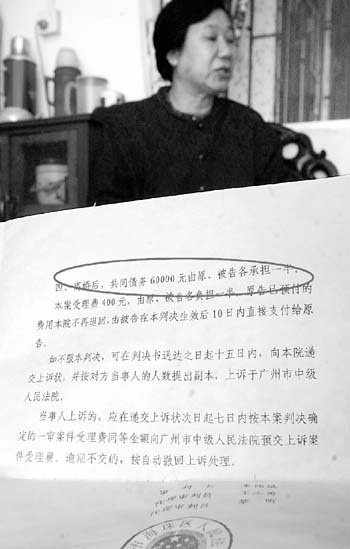 四、离婚后，共同债务60000元由原、被告各承担一半。
本案受理费400元，由原、被告各负担一半，原告已预付的
费用本院不再退回，由被告在本判决生效后10日内直接支付给原
告。
如不服本判决，可在判决书送达之日起十五日内，向本院递
交上诉状，并按对方当事人的人数提出副本，上诉于广州市中级
人民法院。
当事人上诉的，应在递交上诉状次日起七日内按本案判决确
定的一审案件受理费同等金额向广州市中级人民法院预交上诉案
件受理费。逾期不交的，按自动撤回上诉处理。
审判长
代理审判员
代理审判员
市海珠区人民法